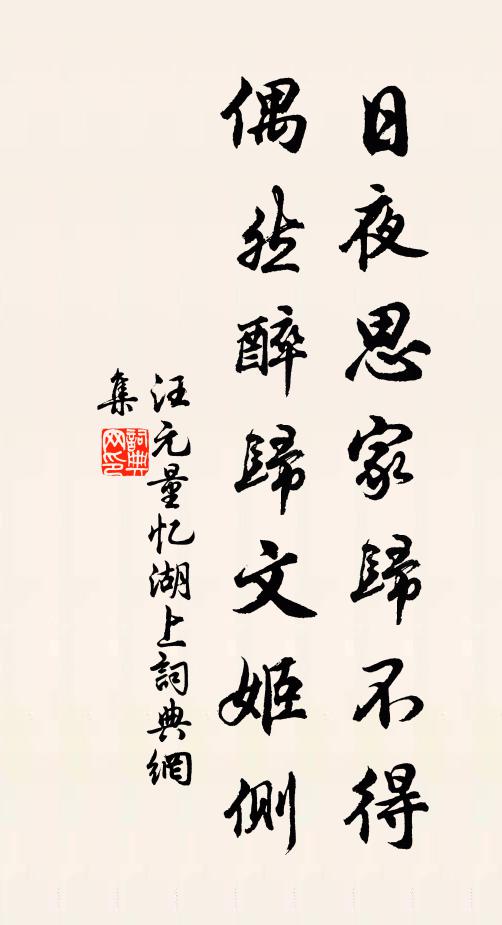 日夜思家歸不得
偶然醉歸文姬側
汪元量忆湖上詞典網
集
詞典
网印